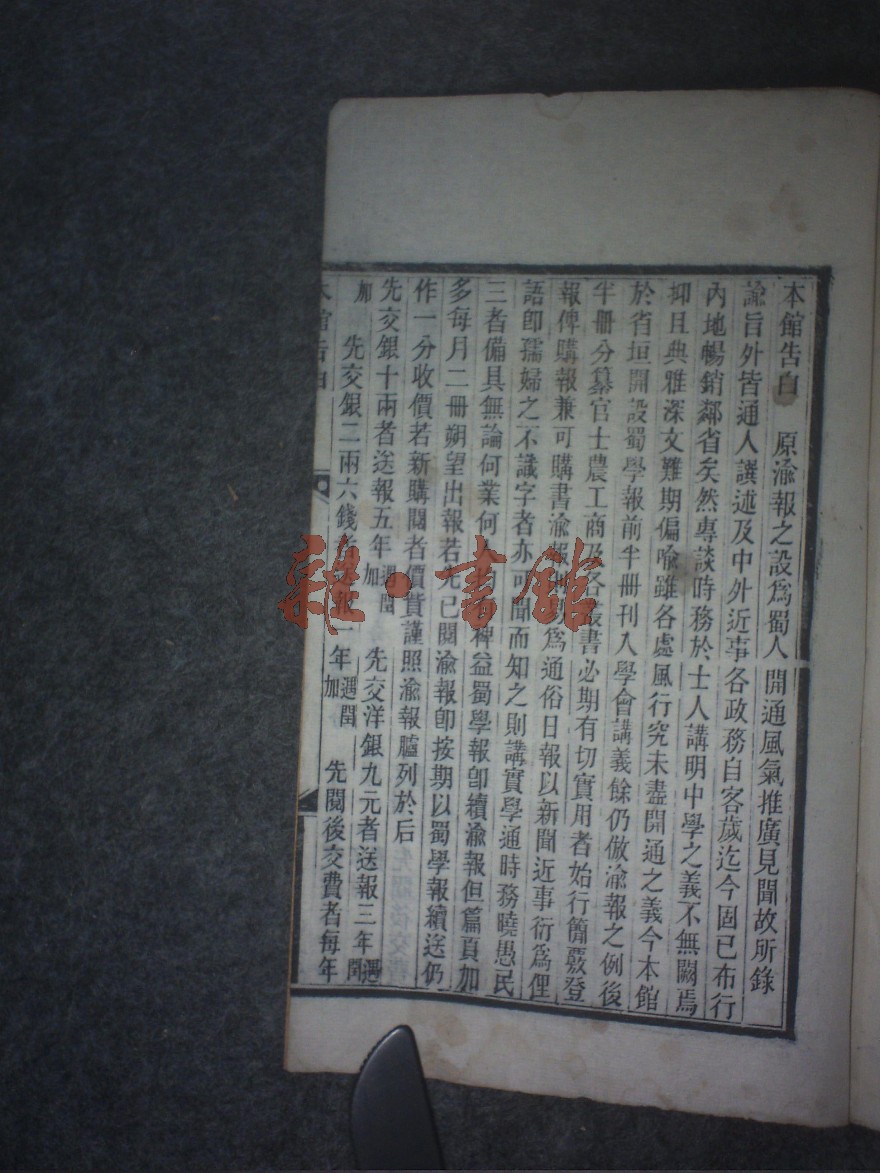 本館告白 原渝報之設爲蜀人開通風氣推廣見聞故所錄
諭旨外皆通人譔述及中外近事各政務自客歲迄今固已布行
內地暢銷鄰省矣然專談時務於士人講明中學之義不無闕焉
抑且典雅深文難期偏喻雖各處風行究未盡開通之義今本館
於省垣開設蜀學報前半冊刊入學會講義餘仍倣渝報之例後
半冊分纂官士農工商及各叢書必期有切實用者始行簡覈登
報俾購報兼可購書渝報 爲通俗日報以新聞近事衍爲俚
語卽孺婦之不識字者亦可聞而知之則講實學通時務曉愚民
三者備具無論何業何人均 裨益蜀學報卽續渝報但篇頁加
多每月二冊朔望出報若先已閱渝報卽按期以蜀學報續送仍
作一分收價若新購閱者價貲謹照渝報臚列於后
先交銀十兩者送報五年遇閏加 先交洋銀九元者送報三年遇閏
加 先交銀二兩六錢者送報一年遇閏加 先閱後交費者每年
本館告白
雜·書館